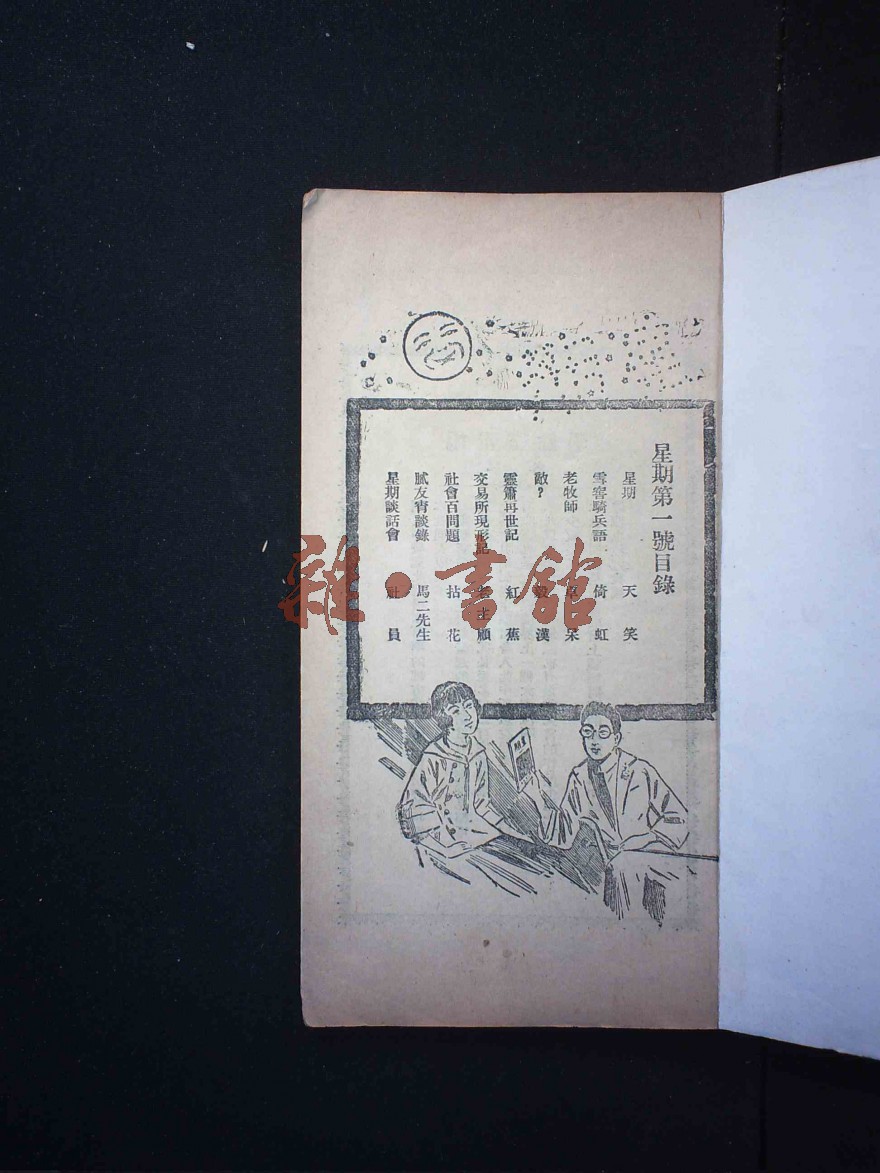 星期第一號目錄
星期 天笑
雪窖騎兵語 倚虹
老牧師 卓呆
敵？ 毅漢
靈簫再世記 紅蕉
交易所現形記 老主顧
社會百問題 拈花
膩友宵談錄 馬二先生
星期談話會 社員
雜·書館